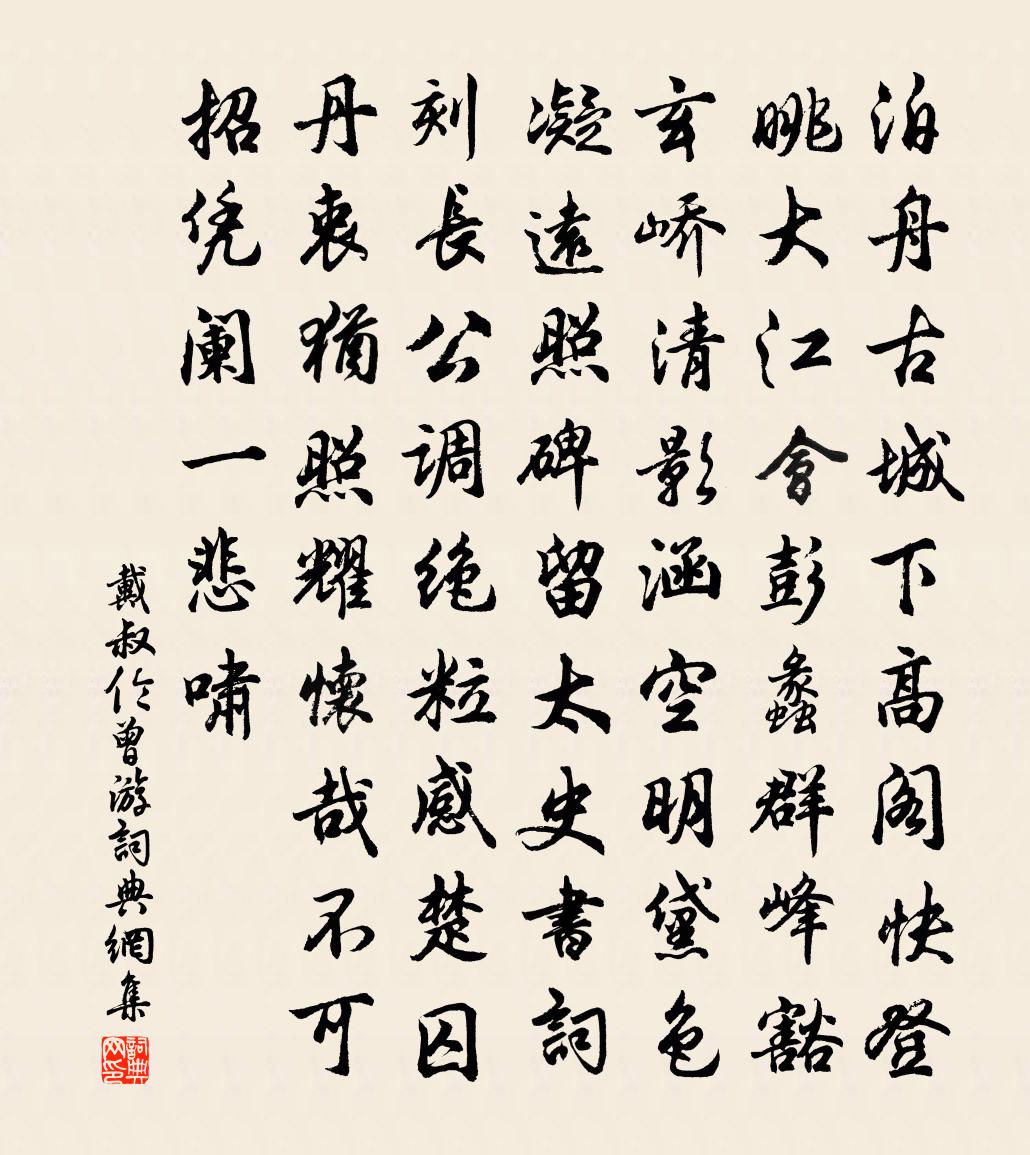 泊舟古城下高阁快登
眺大江會彭蠡群峰豁
玄峤清影涵空明黛色
凝遠照碑留太史書詞
刻長公調绝粒感楚囚
丹衷猶照耀懷哉不可
招凭阑一悲嘯
戴叔伦曾游詞典網集
詞典网印